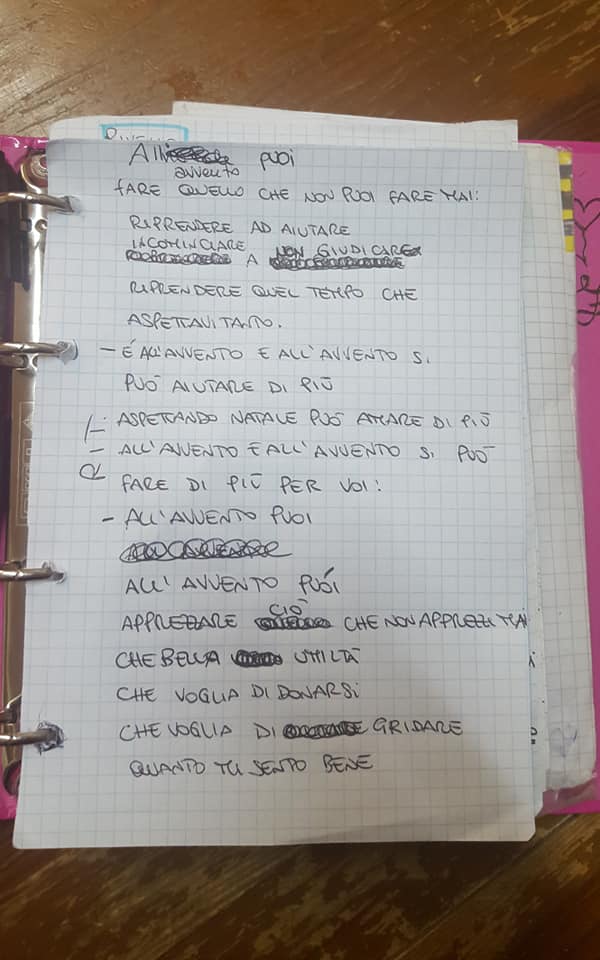 All' puoi
avvento
FARE QUELLO CHE NON PUOI FARE MAI:
RIPRENDERE AD AIUTARE
INCOMINCIARE A NON GIUDICARE
RIPRENDERE QUEL TEMPO CHE
ASPETTAVI TANTO.
- È ALL'AVVENTO E ALL'AVVENTO SI
PUÒ AIUTARE DI PIÙ
ASPETTANDO NATALE PUÒ AMARE DI PIÙ
- ALL'AVVENTO E ALL'AVVENTO SI PUÒ
FARE DI PIÙ PER VOI!
- ALL'AVVENTO PUOI
ALL'AVVENTO PUÓI
APPREZZARE CIÒ CHE NON APPREZZI MAI
CHE BELLA UMILTÀ
CHE VOGLIA DI DONARSI
CHE VOGLIA DI GRIDARE
QUANTO MI SENTO BENE